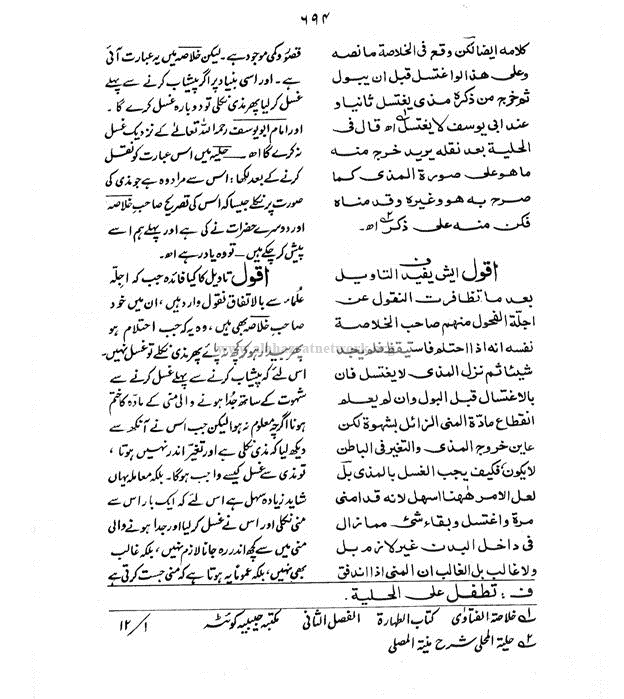 ۶۹۴
کلامہ ایضا لکن وقع فی الخلاصة مانصه
وعلی ھذا لواغتسل قبل ان یبول
ثم خرج من ذکرہ مذی یغتسل ثانیا و
عند ابی یوسف لایغتسل۱ اھ قال فی
الحلیة بعد نقله یرید خرج منه
ماھو علی صورة المذی کما
صرح به ھو وغیرہ وقدمناہ
فکن منه علی ذکر۲ اھ۔
اقول ایش یفید التاویل
بعد ماتظافرت النقول عن
اجلّة الفحول منھم صاحب الخلاصة
نفسه انه اذا احتلم فاستیقظ فلم یجد
شیئا ثم نزل المذی لایغتسل فان
بالاغتسال قبل البول وان لم یعلم
انقطاع مادّة المنی الزائل بشھوة لکن
عاین خروج المذی والتغیر فی الباطن
لایکون فکیف یجب الغسل بالمذی بل
لعل الامر ھٰھنا اسھل لانه قد امنی
مرة واغتسل وبقاء شیئ ممازال
فی داخل البدن غیر لازم بل
ولا غالب بل الغالب ان المنی اذا اندفق
قصوٗ وکمی موجود ہے۔ لیکن خلاصہ میں یہ عبارت آئی
ہے۔ اور اسی بنیاد پر اگر پیشاب کرنے سے پہلے
غسل کر لیا پھر مذی نکلی تو دوبارہ غسل کرے گا۔
اور امام ابویوسف رحمہ اللہ تعالٰی کے نزدیک غسل
نہ کرے گا اھ۔ حلیہ میں اس عبارت کو نقل
کرنے کے بعد لکھا: اس سے مراد وہ ہے جو مذی کی
صورت پر نکلے جیسا کہ اس کی تصریح صاحبِ خلاصہ
اور دوسرے حضرات نے کی ہے اور پہلے ہم اسے
پیش کر چکے ہیں۔ تو وہ یاد رہے اھ۔
اقول تاویل کا کیا فائدہ جب کہ اجلّہ
علماء سے بالاتفاق نقول وارد ہیں، ان میں خود
صاحبِ خلاصہ بھی ہیں، وہ یہ کہ جب احتلام ہو
پھر بیدار ہو کر کچھ نہ پائے پھر مذی نکلے تو غسل نہیں۔
اس لئے کہ پیشاب کرنے سے پہلے غسل سے
شہوت کے ساتھ جُدا ہونے والی منی کے مادہ کا ختم
ہونا اگرچہ معلوم نہ ہوا لیکن جب اس نے آنکھ سے
دیکھ لیا کہ مذی نکلی ہے اور تغیّر اندر نہیں ہوتا،
تو مذی سے غسل کیسے واجب ہوگا۔ بلکہ معاملہ یہاں
شاید زیادہ سہل ہے اس لئے کہ ایک بار اس سے
منی نکلی اور اس نے غسل کر لیا اور جدا ہونے والی
منی میں سے کچھ اندر رہ جانا لازم نہیں، بلکہ غالب
بھی نہیں، بلکہ عموماً یہ ہوتا ہے کہ منی جست کرتی ہے
ف: تطفل علی الحلیة۔
۱؎ خلاصة الفتاوٰی کتاب الطہارة الفصل الثانی مکتبہ حبیبیہ کوئٹہ ۱/ ۱۲
۲؎ حلیة المحلی شرح منیة المصلی